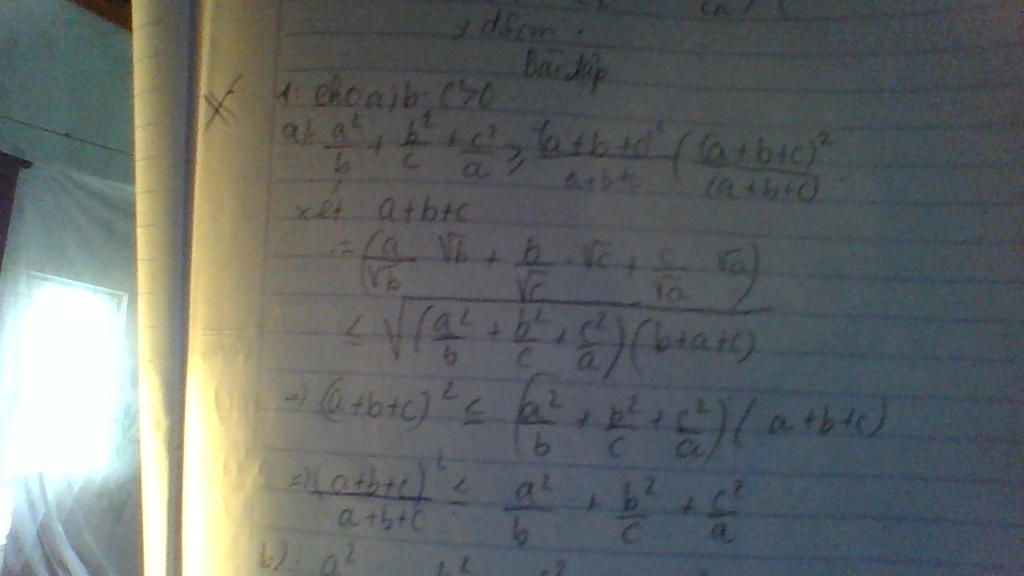 đfcm.
Bài tập
1: cho a, b, c > 0
a) a²/b + b²/c + c²/a ≥ (a+b+c)²/a+b+c ( (a+b+c)²/(a+b+c)
xét a+b+c
= (a/√b · √b + b/√c · √c + c/√a · √a)
≤ √(a²/b + b²/c + c²/a)(b+a+c)
=> (a+b+c)² ≤ (a²/b + b²/c + c²/a)(a+b+c)
=> (a+b+c)²/a+b+c ≤ a²/b + b²/c + c²/a
b) a²